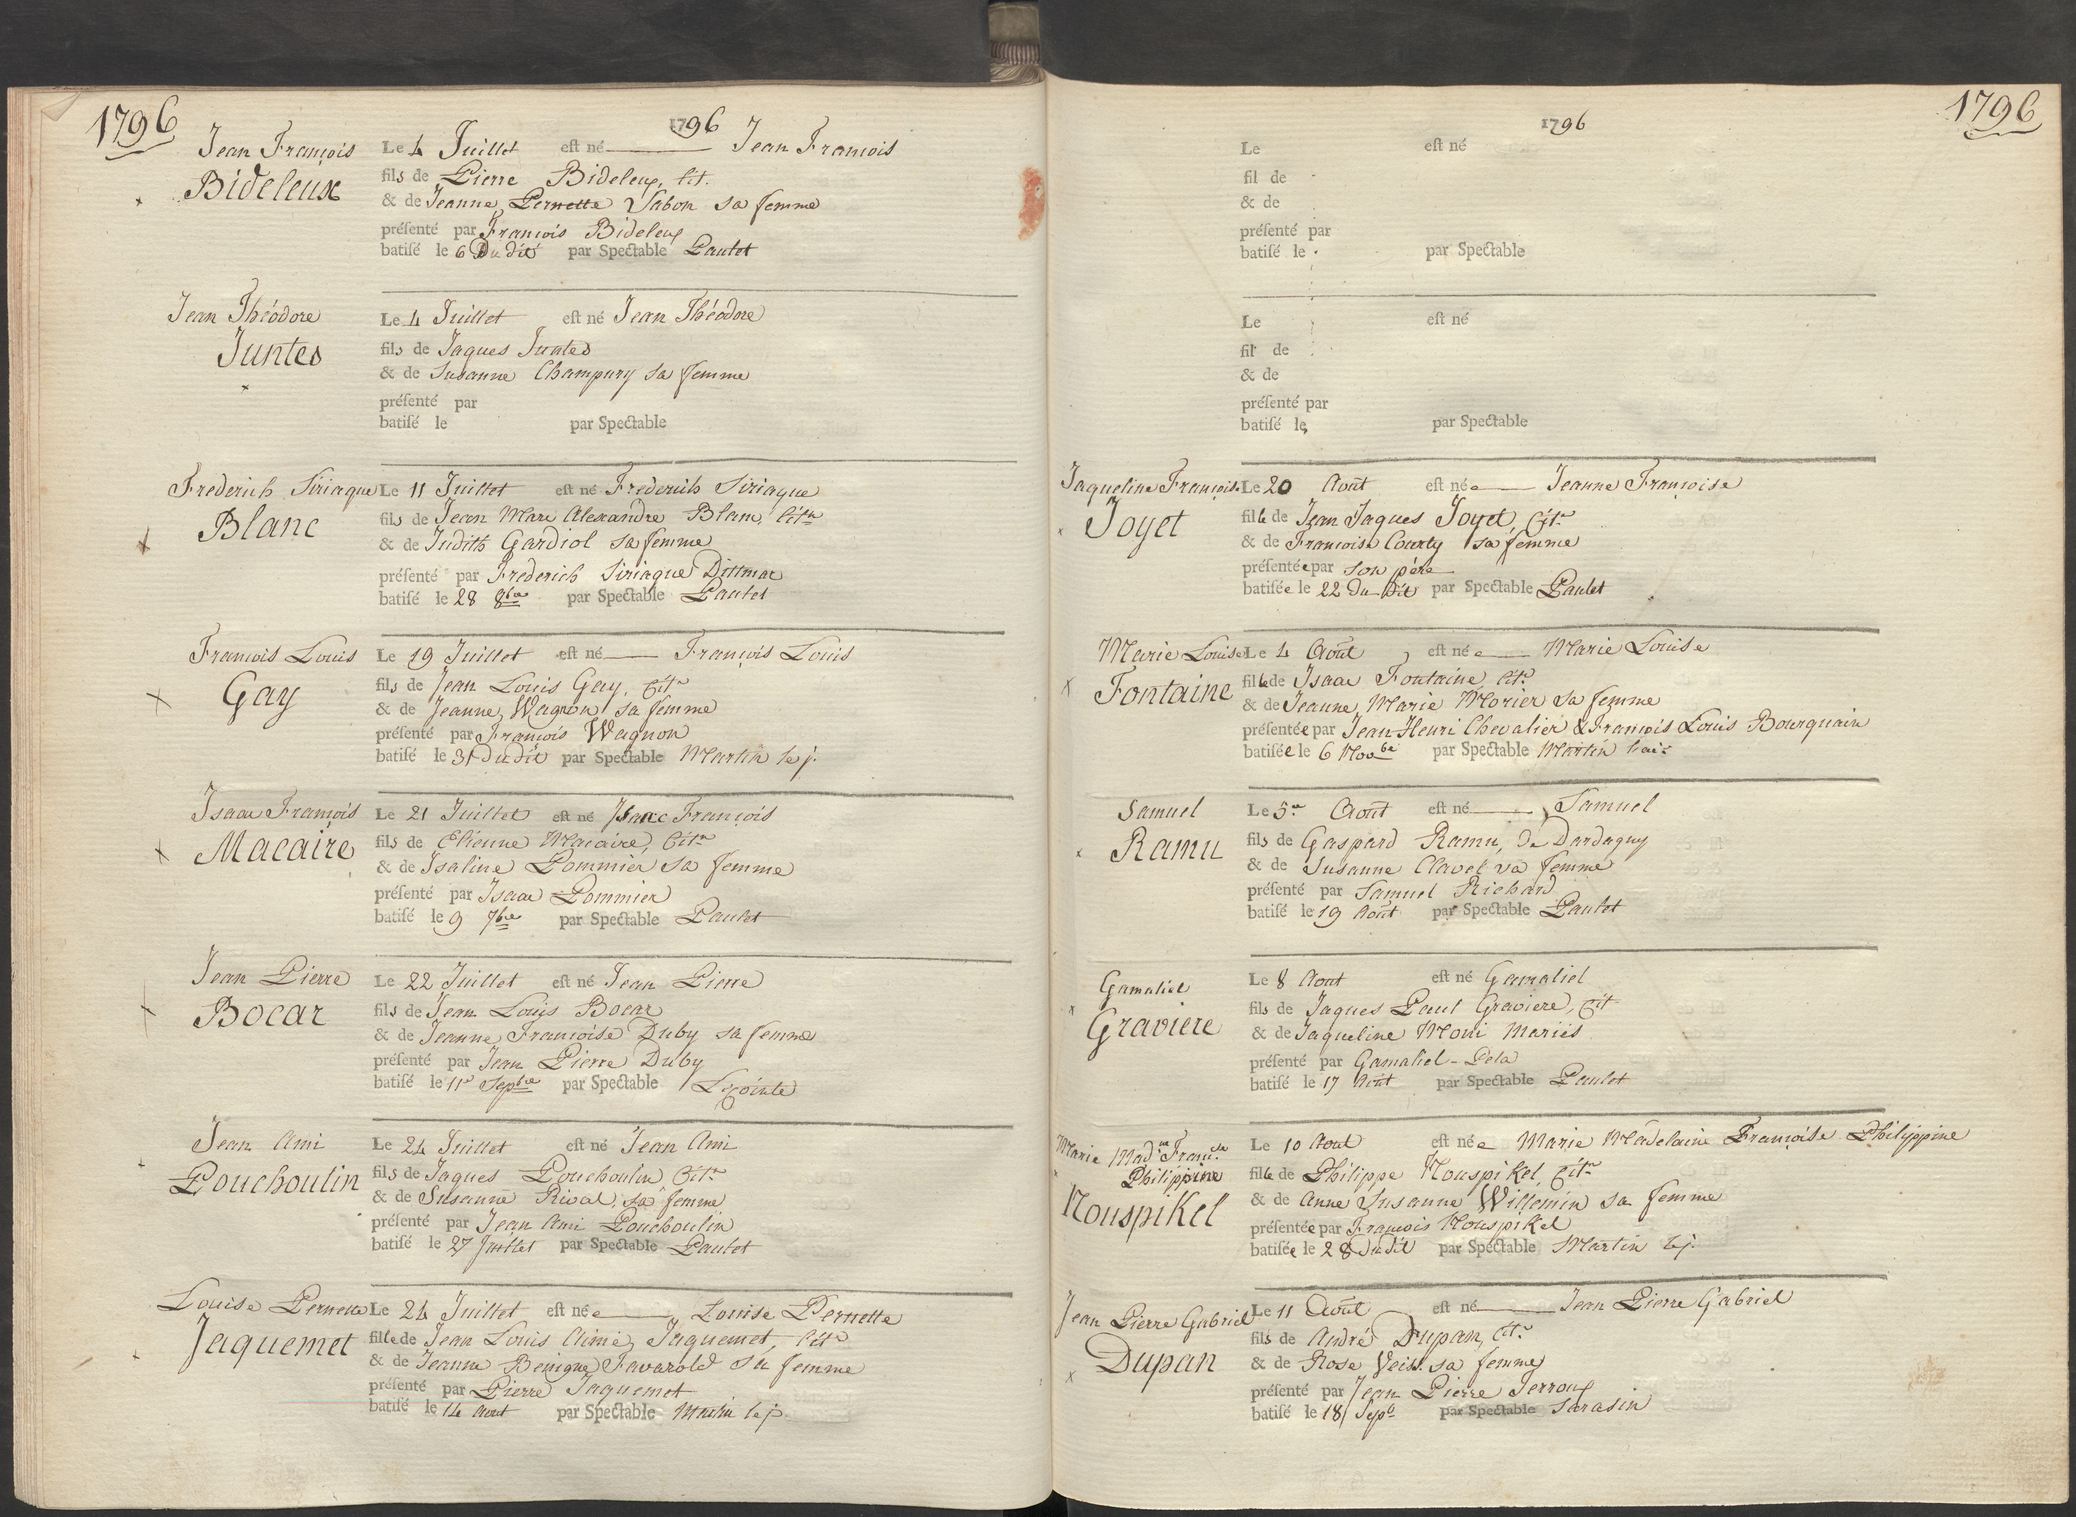 1796
1796
Jean François
Bideleux
Le 4 Juillet est né Jean François
fils de Pierre Bideleux, Cit.
& de Jeanne Pernette Sabon sa femme
préſenté par François Bideleux
batiſé le 6 Du dit par Spectable Pautet
Jean Théodore
Juntes
Le 4 Juillet est né Jean Théodore
fils de Jaques Juntes
& de Susanne Champury sa femme
préſenté par
batiſé le par Spectable
Frederich Siriaque
Blanc
Le 11 Juillet est né Frederich Siriaque
fils de Jean Marc Alexandre Blanc, Citn
& de Judith Gardiol sa femme
préſenté par Frederich Siriaque Dittmar
batiſé le 28 8bre par Spectable Pautet
François Louis
Gay
Le 19 Juillet est né François Louis
fils de Jean Louis Gay, Citn
& de Jeanne Wagnon sa femme
préſenté par François Wagnon
batiſé le 31 Du dit par Spectable Martin le j.
Isaac François
Macaire
Le 21 Juillet est né Isaac François
fils de Etienne Macaire, Citn
& de Isaline Pommier sa femme
préſenté par Isaac Pommier
batiſé le 9 7bre par Spectable Pautet
Jean Pierre
Bocar
Le 22 Juillet est né Jean Pierre
fils de Jean Louis Bocar
& de Jeanne Françoise Duby sa femme
préſenté par Jean Pierre Duby
batiſé le 11e Sepbre par Spectable Lecointe
Jean Ami
Pouchoulin
Le 24 Juillet est né Jean Ami
fils de Jaques Pouchoulin, Citn
& de Susanne Rival, sa femme
préſenté par Jean Ami Pouchoulin
batiſé le 27 Juillet par Spectable Pautet
Louise Pernette
Jaquemet
Le 24 Juillet est née Louise Pernette
fille de Jean Louis Aimé Jaquemet, Citn
& de Jeanne Benigne Favarold sa femme
préſenté par Pierre Jaquemet
batiſé le 14 Aout par Spectable Martin le j.
1796
1796
Le est né
fil de
& de
préſenté par
batiſé le par Spectable
Le est né
fil de
& de
préſenté par
batiſé le par Spectable
Jaqueline Françoise
Joyet
Le 20 Aout est née Jeanne Françoise
fille de Jean Jaques Joyet, Citn
& de Françoise Courty sa femme
préſentée par son père
batiſée le 22 Du Dit par Spectable Pautet
Marie Louise
Fontaine
Le 4 Août est née Marie Louise
fille de Isaac Fontaine Citn
& de Jeanne Marie Morier sa femme
préſentée par Jean Henri Chevalier & François Louis Bourquain
batiſée le 6 Novbe par Spectable Martin l'ai
Samuel
Ramu
Le 5e Août est né Samuel
fils de Gaspard Ramu, De Dardagny
& de Susanne Clavel sa femme
préſenté par Samuel Richard
batiſé le 19 Août par Spectable Pautet
Gamaliel
Graviere
Le 8 Aout est né Gamaliel
fils de Jaques Paul Graviere, Cit
& de Jaqueline Moni Mariés
préſenté par Gamaliel - Dela
batiſé le 17 Août par Spectable Pautet
Marie Madne Franse
Philippine
Nouspikel
Le 10 Aout est née Marie Madelaine Françoise Philippine
fille de Philippe Nouspikel, Citn
& de Anne Susanne Willemin sa femme
préſentée par François Nouspikel
batiſée le 28 Du dit par Spectable Martin le j.
Jean Pierre Gabriel
Dupan
Le 11 Août est né Jean Pierre Gabriel
fils de André Dupan, Citn
& de Rose Veiss. sa femme
préſenté par Jean Pierre Terroux
batiſé le 18 Sepb par Spectable Sarasin